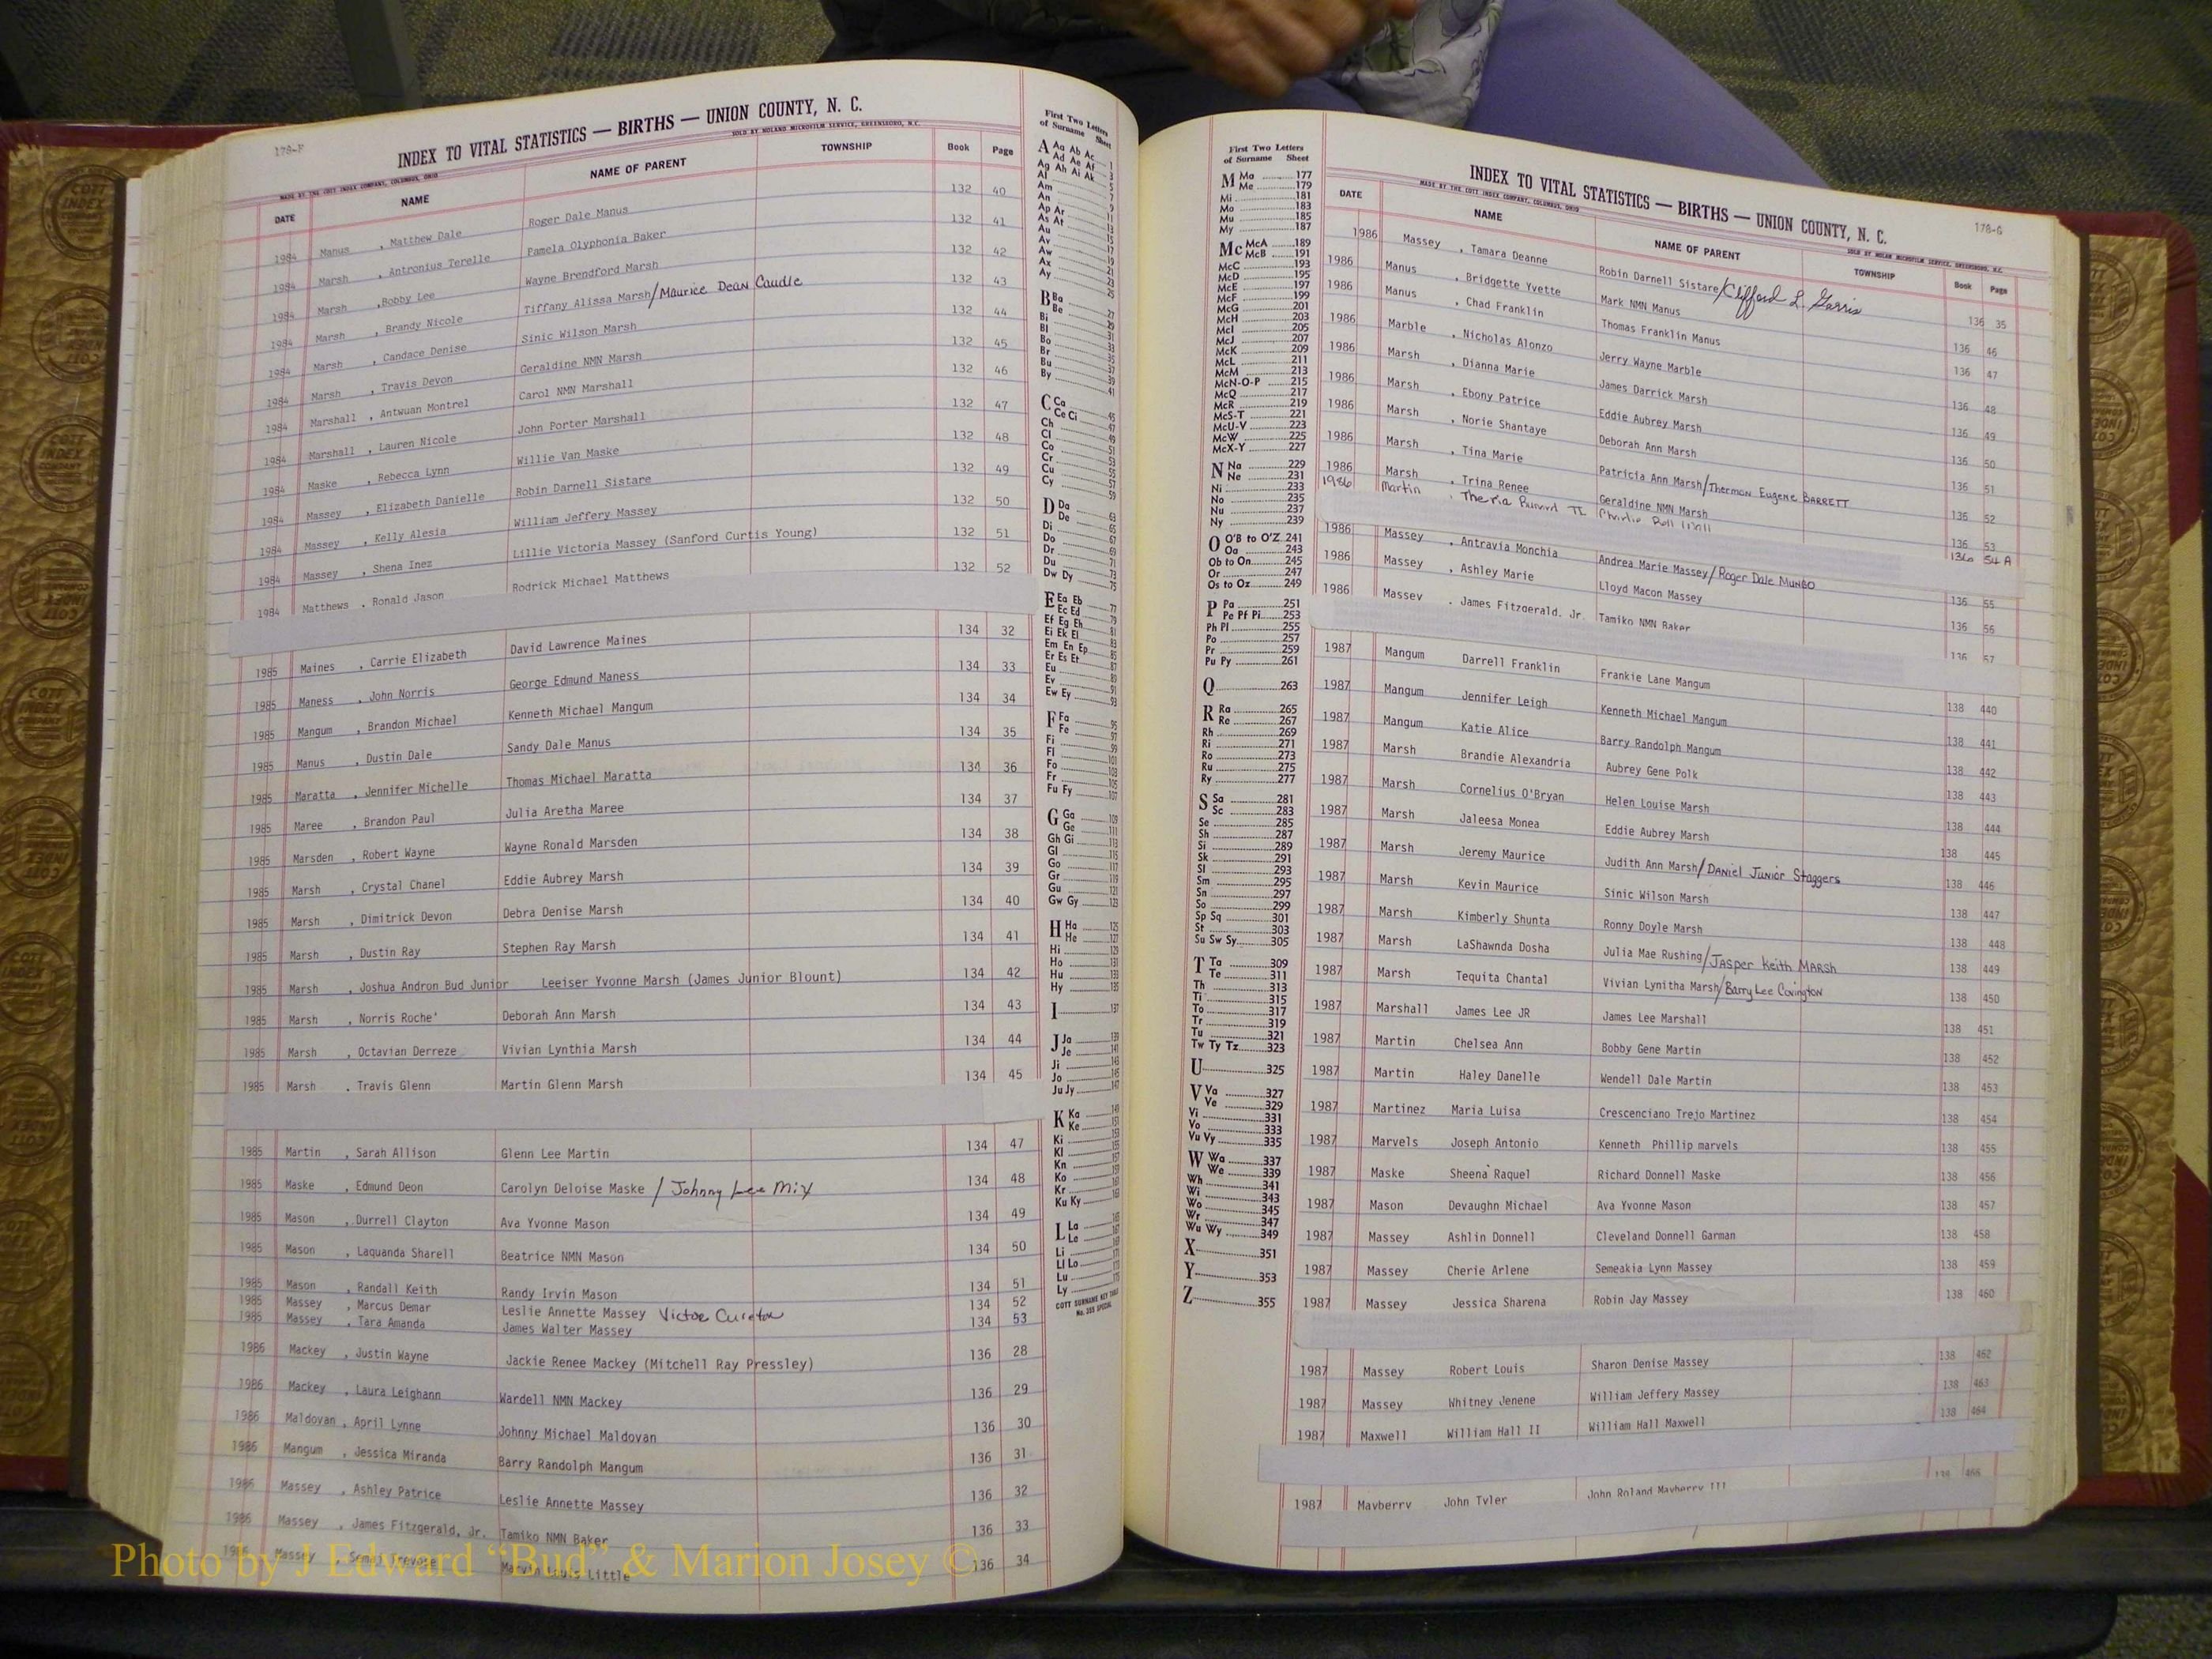 178-F
INDEX TO VITAL STATISTICS — BIRTHS — UNION COUNTY, N. C.
MADE BY THE COTT INDEX COMPANY, COLUMBUS, OHIO
SOLD BY NOLAND MICROFILM SERVICE, GREENSBORO, N.C.
DATE NAME NAME OF PARENT TOWNSHIP Book Page
1984 Manus , Matthew Dale Roger Dale Manus 132 40
1984 Marsh , Antronius Terelle Pamela Olyphonia Baker 132 41
1984 Marsh ,Bobby Lee Wayne Brendford Marsh 132 42
1984 Marsh , Brandy Nicole Tiffany Alissa Marsh/Maurice Dean Caudle 132 43
1984 Marsh , Candace Denise Sinic Wilson Marsh 132 44
1984 Marsh , Travis Devon Geraldine NMN Marsh 132 45
1984 Marshall , Antwuan Montrel Carol NMN Marshall 132 46
1984 Marshall , Lauren Nicole John Porter Marshall 132 47
1984 Maske , Rebecca Lynn Willie Van Maske 132 48
1984 Massey , Elizabeth Danielle Robin Darnell Sistare 132 49
1984 Massey , Kelly Alesia William Jeffery Massey 132 50
1984 Massey , Shena Inez Lillie Victoria Massey (Sanford Curtis Young) 132 51
1984 Matthews , Ronald Jason Rodrick Michael Matthews 132 52
1985 Maines , Carrie Elizabeth David Lawrence Maines 134 32
1985 Maness , John Norris George Edmund Maness 134 33
1985 Mangum , Brandon Michael Kenneth Michael Mangum 134 34
1985 Manus , Dustin Dale Sandy Dale Manus 134 35
1985 Maratta , Jennifer Michelle Thomas Michael Maratta 134 36
1985 Maree , Brandon Paul Julia Aretha Maree 134 37
1985 Marsden , Robert Wayne Wayne Ronald Marsden 134 38
1985 Marsh , Crystal Chanel Eddie Aubrey Marsh 134 39
1985 Marsh , Dimitrick Devon Debra Denise Marsh 134 40
1985 Marsh , Dustin Ray Stephen Ray Marsh 134 41
1985 Marsh , Joshua Andron Bud Junior Leeiser Yvonne Marsh (James Junior Blount) 134 42
1985 Marsh , Norris Roche' Deborah Ann Marsh 134 43
1985 Marsh , Octavian Derreze Vivian Lynthia Marsh 134 44
1985 Marsh , Travis Glenn Martin Glenn Marsh 134 45
1985 Martin , Sarah Allison Glenn Lee Martin 134 47
1985 Maske , Edmund Deon Carolyn Deloise Maske / Johnny Lee Mix 134 48
1985 Mason , Durrell Clayton Ava Yvonne Mason 134 49
1985 Mason , Laquanda Sharell Beatrice NMN Mason 134 50
1985 Mason , Randall Keith Randy Irvin Mason 134 51
1985 Massey , Marcus Demar Leslie Annette Massey Victor Cureton 134 52
1985 Massey , Tara Amanda James Walter Massey 134 53
1986 Mackey , Justin Wayne Jackie Renee Mackey (Mitchell Ray Pressley) 136 28
1986 Mackey , Laura Leighann Wardell NMN Mackey 136 29
1986 Maldovan , April Lynne Johnny Michael Maldovan 136 30
1986 Mangum , Jessica Miranda Barry Randolph Mangum 136 31
1986 Massey , Ashley Patrice Leslie Annette Massey 136 32
1986 Massey , James Fitzgerald, Jr. Tamiko NMN Baker 136 33
1986 Massey , Little 136 34
First Two Letters
of Surname Sheet
A Aa Ab Ac 1
Ad Ae Af 3
Ag Ah Ai Ak 5
Al 7
Am 9
An 11
Ap Ar 13
As At 15
Au 17
Av 19
Aw 21
Ax 23
Ay 25
B Ba 27
Be 29
Bi 31
Bl 33
Bo 35
Br 37
Bu 39
By 41
C Ca 45
Ce Ci 47
Ch 49
Cl 51
Co 53
Cr 55
Cu 57
Cy 59
D Da 63
De 65
Di 67
Do 69
Dr 71
Du 73
Dw Dy 75
E Ea Eb 77
Ec Ed 79
Ef Eg Eh 81
Ei Ek El 83
Em En Ep 85
Er Es Et 87
Eu 89
Ev 91
Ew Ey 93
F Fa 95
Fe 97
Fi 99
Fl 101
Fo 103
Fr 105
Fu Fy 107
G Ga 109
Ge 111
Gh Gi 113
Gl 115
Go 117
Gr 119
Gu 121
Gw Gy 123
H Ha 125
He 127
Hi 129
Ho 131
Hu 133
Hy 135
I 137
J Ja 139
Je 141
Ji 143
Jo 145
Ju Jy 147
K Ka 149
Ke 151
Ki
Kl
Kn
Ko
Kr
Ku Ky
L La
Le
Li
Ll Lo
Lu
Ly
COTT SURNAME KEY TABLE
No. 355 SPECIAL
First Two Letters
of Surname Sheet
M Ma 177
Me 179
Mi 181
Mo 183
Mu 185
My 187
Mc McA 189
McB 191
McC 193
McD 195
McE 197
McF 199
McG 201
McH 203
McI 205
McJ 207
McK 209
McL 211
McM 213
McN-O-P 215
McQ 217
McR 219
McS-T 221
McU-V 223
McW 225
McX-Y 227
N Na 229
Ne 231
Ni 233
No 235
Nu 237
Ny 239
O O'B to O'Z 241
Oa 243
Ob to On 245
Or 247
Os to Oz 249
P Pa 251
Pe Pf Pi 253
Ph Pl 255
Po 257
Pr 259
Pu Py 261
Q 263
R Ra 265
Re 267
Rh 269
Ri 271
Ro 273
Ru 275
Ry 277
S Sa 281
Sc 283
Se 285
Sh 287
Si 289
Sk 291
Sl 293
Sm 295
Sn 297
So 299
Sp Sq 301
St 303
Su Sw Sy 305
T Ta 309
Te 311
Th 313
Ti 315
To 317
Tr 319
Tu 321
Tw Ty Tz 323
U 325
V Va 327
Ve 329
Vi 331
Vo 333
Vu Vy 335
W Wa 337
We 339
Wh 341
Wi 343
Wo 345
Wr 347
Wu Wy 349
X 351
Y 353
Z 355
178-G
INDEX TO VITAL STATISTICS — BIRTHS — UNION COUNTY, N. C.
MADE BY THE COTT INDEX COMPANY, COLUMBUS, OHIO
SOLD BY NOLAN MICROFILM SERVICE, GREENSBORO, N.C.
DATE NAME NAME OF PARENT TOWNSHIP Book Page
1986 Massey , Tamara Deanne Robin Darnell Sistare/Clifford L. Garris 136 35
1986 Manus , Bridgette Yvette Mark NMN Manus 136 46
1986 Manus , Chad Franklin Thomas Franklin Manus 136 47
1986 Marble , Nicholas Alonzo Jerry Wayne Marble 136 48
1986 Marsh , Dianna Marie James Darrick Marsh 136 49
1986 Marsh , Ebony Patrice Eddie Aubrey Marsh 136 50
1986 Marsh , Norie Shantaye Deborah Ann Marsh 136 51
1986 Marsh , Tina Marie Patricia Ann Marsh/Thermon Eugene BARRETT 136 52
1986 Marsh , Trina Renee Geraldine NMN Marsh 136 53
1986 Martin 136 54 A
1986 Massey , Antravia Monchia Andrea Marie Massey/Roger Dale MUNGO 136 55
1986 Massey , Ashley Marie Lloyd Macon Massey 136 56
1986 Massey , James Fitzgerald, Jr. Tamiko NMN Baker 136 57
1987 Mangum Darrell Franklin Frankie Lane Mangum 138 440
1987 Mangum Jennifer Leigh Kenneth Michael Mangum 138 441
1987 Mangum Katie Alice Barry Randolph Mangum 138 442
1987 Marsh Brandie Alexandria Aubrey Gene Polk 138 443
1987 Marsh Cornelius O'Bryan Helen Louise Marsh 138 444
1987 Marsh Jaleesa Monea Eddie Aubrey Marsh 138 445
1987 Marsh Jeremy Maurice Judith Ann Marsh/DANiEL JUNIOR Staggers 138 446
1987 Marsh Kevin Maurice Sinic Wilson Marsh 138 447
1987 Marsh Kimberly Shunta Ronny Doyle Marsh 138 448
1987 Marsh LaShawnda Dosha Julia Mae Rushing/JASPER KEITH MARSH 138 449
1987 Marsh Tequita Chantal Vivian Lynitha Marsh/Barry Lee Covington 138 450
1987 Marshall James Lee JR James Lee Marshall 138 451
1987 Martin Chelsea Ann Bobby Gene Martin 138 452
1987 Martin Haley Danelle Wendell Dale Martin 138 453
1987 Martinez Maria Luisa Crescenciano Trejo Martinez 138 454
1987 Marvels Joseph Antonio Kenneth Phillip marvels 138 455
1987 Maske Sheena Raquel Richard Donnell Maske 138 456
1987 Mason Devaughn Michael Ava Yvonne Mason 138 457
1987 Massey Ashlin Donnell Cleveland Donnell Garman 138 458
1987 Massey Cherie Arlene Semeakia Lynn Massey 138 459
1987 Massey Jessica Sharena Robin Jay Massey 138 460
1987 Massey Robert Louis Sharon Denise Massey 138 462
1987 Massey Whitney Jenene William Jeffery Massey 138 463
1987 Maxwell William Hall II William Hall Maxwell 138 464
1987 Mayberry John Tyler John Roland Mayberry III 138 466
Photo by J Edward “Bud” & Marion Josey ©